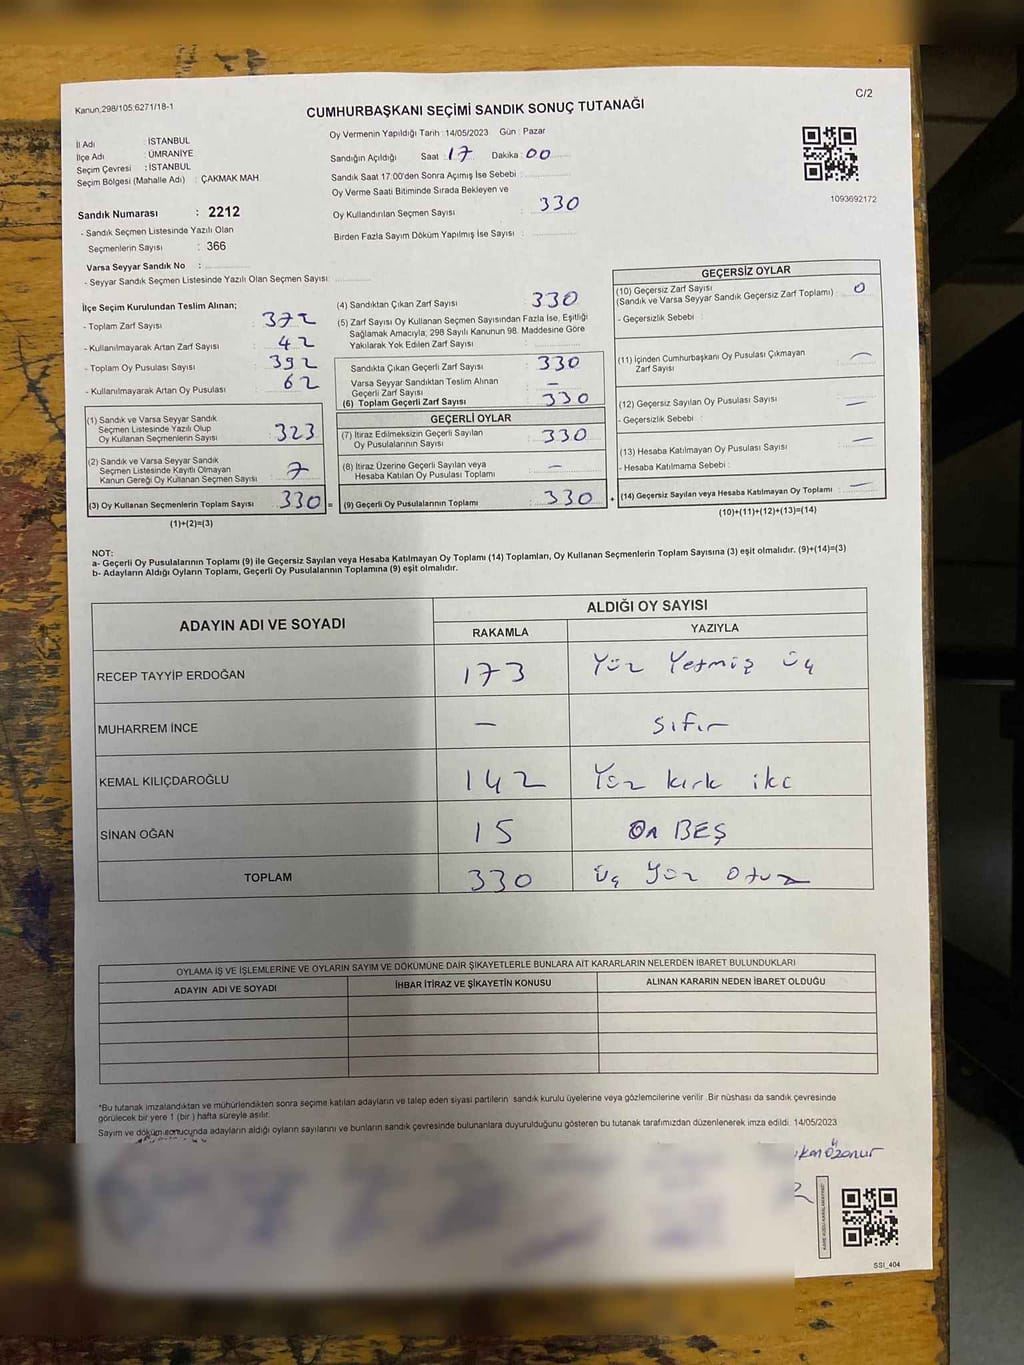 Kanun,298/105;6271/18-1
CUMHURBAŞKANI SEÇİMİ SANDIK SONUÇ TUTANAĞI
C/2
İl Adı : İSTANBUL
İlçe Adı : ÜMRANİYE
Seçim Çevresi : İSTANBUL
Seçim Bölgesi (Mahalle Adı) : ÇAKMAK MAH.
Sandık Numarası : 2212
- Sandık Seçmen Listesinde Yazılı Olan
Seçmenlerin Sayısı : 366
Varsa Seyyar Sandık No :
- Seyyar Sandık Seçmen Listesinde Yazılı Olan Seçmen Sayısı:
Oy Vermenin Yapıldığı Tarih : 14/05/2023 Gün : Pazar
Sandığın Açıldığı Saat : 17 Dakika : 00
Sandık Saat 17:00'den Sonra Açımış İse Sebebi :
Oy Verme Saati Bitiminde Sırada Bekleyen ve
Oy Kullandırılan Seçmen Sayısı : 330
Birden Fazla Sayım Döküm Yapılmış İse Sayısı :
1093692172
İlçe Seçim Kurulundan Teslim Alınan;
- Toplam Zarf Sayısı : 372
- Kullanılmayarak Artan Zarf Sayısı : 42
- Toplam Oy Pusulası Sayısı : 392
- Kullanılmayarak Artan Oy Pusulası : 62
(1) Sandık ve Varsa Seyyar Sandık
Seçmen Listesinde Yazılı Olup
Oy Kullanan Seçmenlerin Sayısı : 323
(2) Sandık ve Varsa Seyyar Sandık
Seçmen Listesinde Kayıtlı Olmayan
Kanun Gereği Oy Kullanan Seçmen Sayısı : 7
(3) Oy Kullanan Seçmenlerin Toplam Sayısı : 330 =
(1)+(2)=(3)
(4) Sandıktan Çıkan Zarf Sayısı : 330
(5) Zarf Sayısı Oy Kullanan Seçmen Sayısından Fazla İse, Eşitliği
Sağlamak Amacıyla, 298 Sayılı Kanunun 98. Maddesine Göre
Yakılarak Yok Edilen Zarf Sayısı :
Sandıkta Çıkan Geçerli Zarf Sayısı : 330
Varsa Seyyar Sandıktan Teslim Alınan
Geçerli Zarf Sayısı : –
(6) Toplam Geçerli Zarf Sayısı : 330
GEÇERLİ OYLAR
(7) İtiraz Edilmeksizin Geçerli Sayılan
Oy Pusulalarının Sayısı : 330
(8) İtiraz Üzerine Geçerli Sayılan veya
Hesaba Katılan Oy Pusulası Toplamı : –
(9) Geçerli Oy Pusulalarının Toplamı : 330 +
GEÇERSİZ OYLAR
(10) Geçersiz Zarf Sayısı
(Sandık ve Varsa Seyyar Sandık Geçersiz Zarf Toplamı) : 0
- Geçersizlik Sebebi :
(11) İçinden Cumhurbaşkanı Oy Pusulası Çıkmayan
Zarf Sayısı : –
(12) Geçersiz Sayılan Oy Pusulası Sayısı : –
- Geçersizlik Sebebi :
(13) Hesaba Katılmayan Oy Pusulası Sayısı : –
- Hesaba Katılmama Sebebi :
(14) Geçersiz Sayılan veya Hesaba Katılmayan Oy Toplamı : –
(10)+(11)+(12)+(13)=(14)
NOT:
a- Geçerli Oy Pusulalarının Toplamı (9) ile Geçersiz Sayılan veya Hesaba Katılmayan Oy Toplamı (14) Toplamları, Oy Kullanan Seçmenlerin Toplam Sayısına (3) eşit olmalıdır. (9)+(14)=(3)
b- Adayların Aldığı Oyların Toplamı, Geçerli Oy Pusulalarının Toplamına (9) eşit olmalıdır.
ADAYIN ADI VE SOYADI ALDIĞI OY SAYISI
RAKAMLA YAZIYLA
RECEP TAYYİP ERDOĞAN 173 Yüz Yetmiş üç
MUHARREM İNCE – sıfır
KEMAL KILIÇDAROĞLU 142 Yüz kırk iki
SİNAN OĞAN 15 On BEŞ
TOPLAM 330 üç yüz otuz
OYLAMA İŞ VE İŞLEMLERİNE VE OYLARIN SAYIM VE DÖKÜMÜNE DAİR ŞİKAYETLERLE BUNLARA AİT KARARLARIN NELERDEN İBARET BULUNDUKLARI
ADAYIN ADI VE SOYADI İHBAR İTİRAZ VE ŞİKAYETİN KONUSU ALINAN KARARIN NEDEN İBARET OLDUĞU
*Bu tutanak imzalandıktan ve mühürlendikten sonra seçime katılan adayların ve talep eden siyasi partilerin sandık kurulu üyelerine veya gözlemcilerine verilir. Bir nüshası da sandık çevresinde
görülecek bir yere 1 (bir) hafta süreyle asılır.
Sayım ve döküm sonucunda adayların aldığı oyların sayılarını ve bunların sandık çevresinde bulunanlara duyurulduğunu gösteren bu tutanak tarafımızdan düzenlenerek imza edildi. 14/05/2023
SSI_404